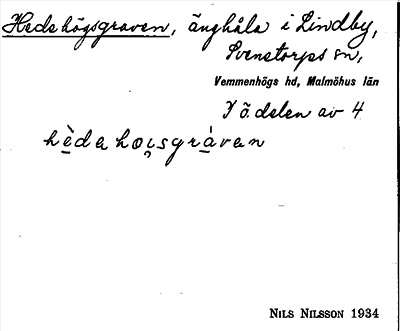 Hedehögsgraven, änghåla i Lindby,
Svenstorps sn,
Vemmenhögs hd, Malmöhus län
I ö. delen av 4
hèdahoi̯sgràvan
NILS NILSSON 1934